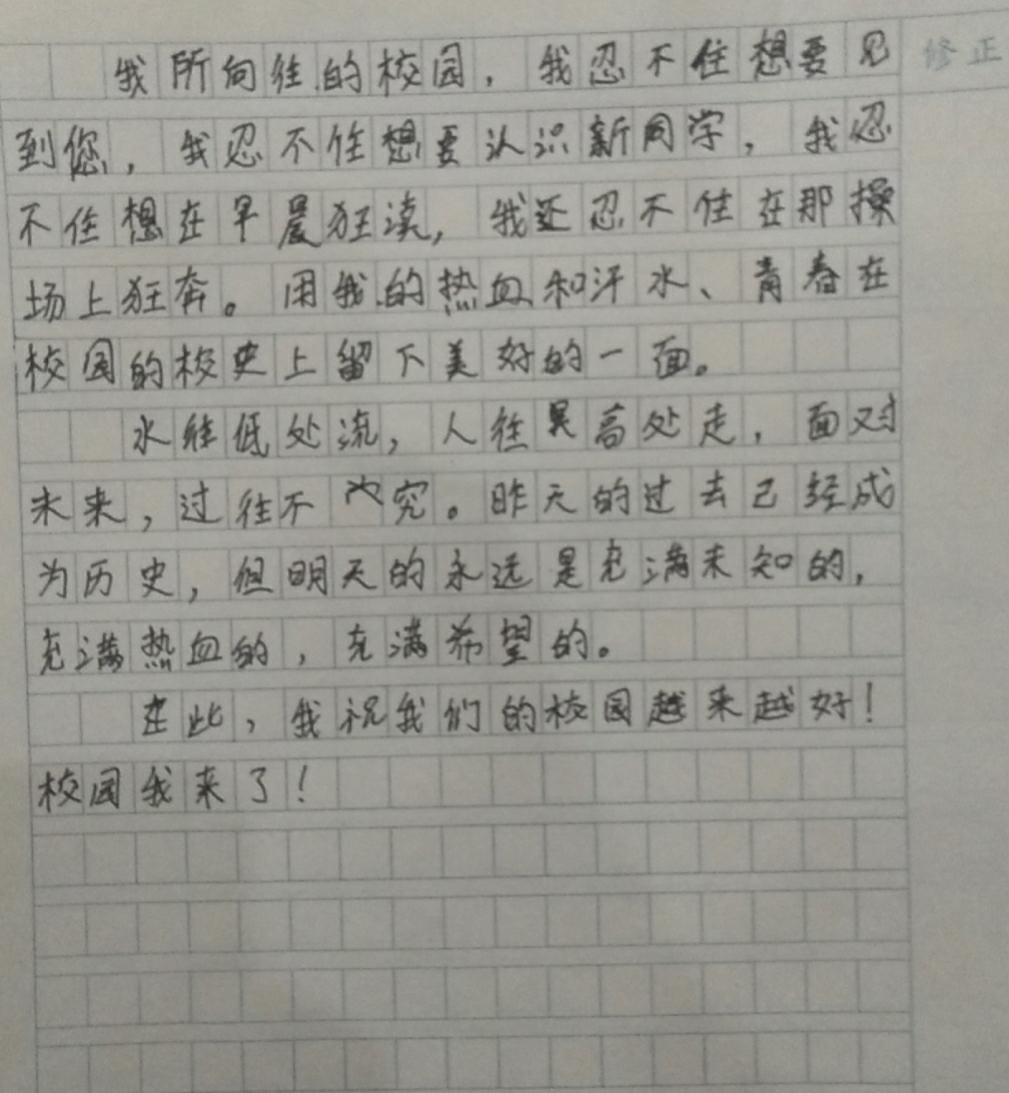 我所向往的校园，我忍不住想要见 修正
到您，我忍不住想要认识新同学，我忍
不住想在早晨狂读，我还忍不住在那操
场上狂奔。用我的热血和汗水、青春在
校园的校史上留下美好的一面。
水往低处流，人往高处走，面对
未来，过往不究。昨天的过去已经成
为历史，但明天的永远是充满未知的，
充满热血的，充满希望的。
在此，我祝我们的校园越来越好！
校园我来了！